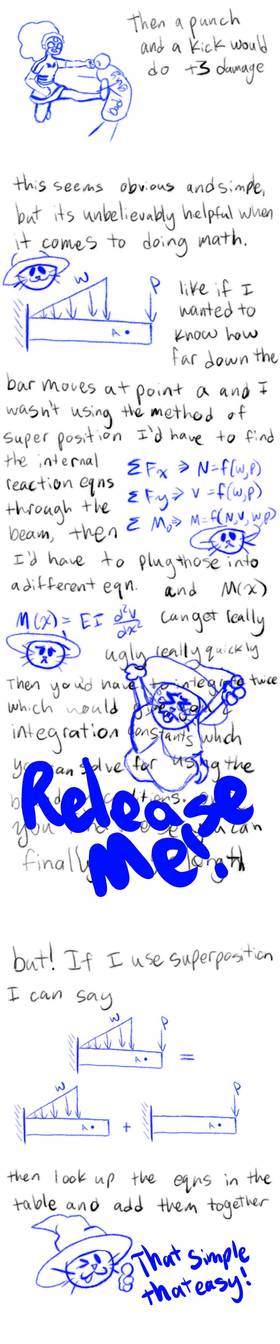 Then a punch
and a kick would
do +3 damage
this seems obvious and simple,
but its unbelievably helpful when
it comes to doing math.
W
P
A
like if I
wanted to
know how
far down the
bar moves at point a and I
wasn't using the method of
super position I'd have to find
the internal
reaction eqns
through the
beam, then
ΣFx ⇒ N=f(w,p)
ΣFy ⇒ V=f(w,p)
ΣMo ⇒ M=f(N,V,w,p)
I'd have to plug those into
a different eqn. and M(x)
M(x) = EI d²v/dx² can get really
ugly really quickly
Then you'd have to integrate twice
which would
integration constants which
you can solve for using the
you can
finally
Release
Me!
but! If I use superposition
I can say
W
P
A
=
W
A
+
P
A
then look up the eqns in the
table and add them together
That simple
that easy!